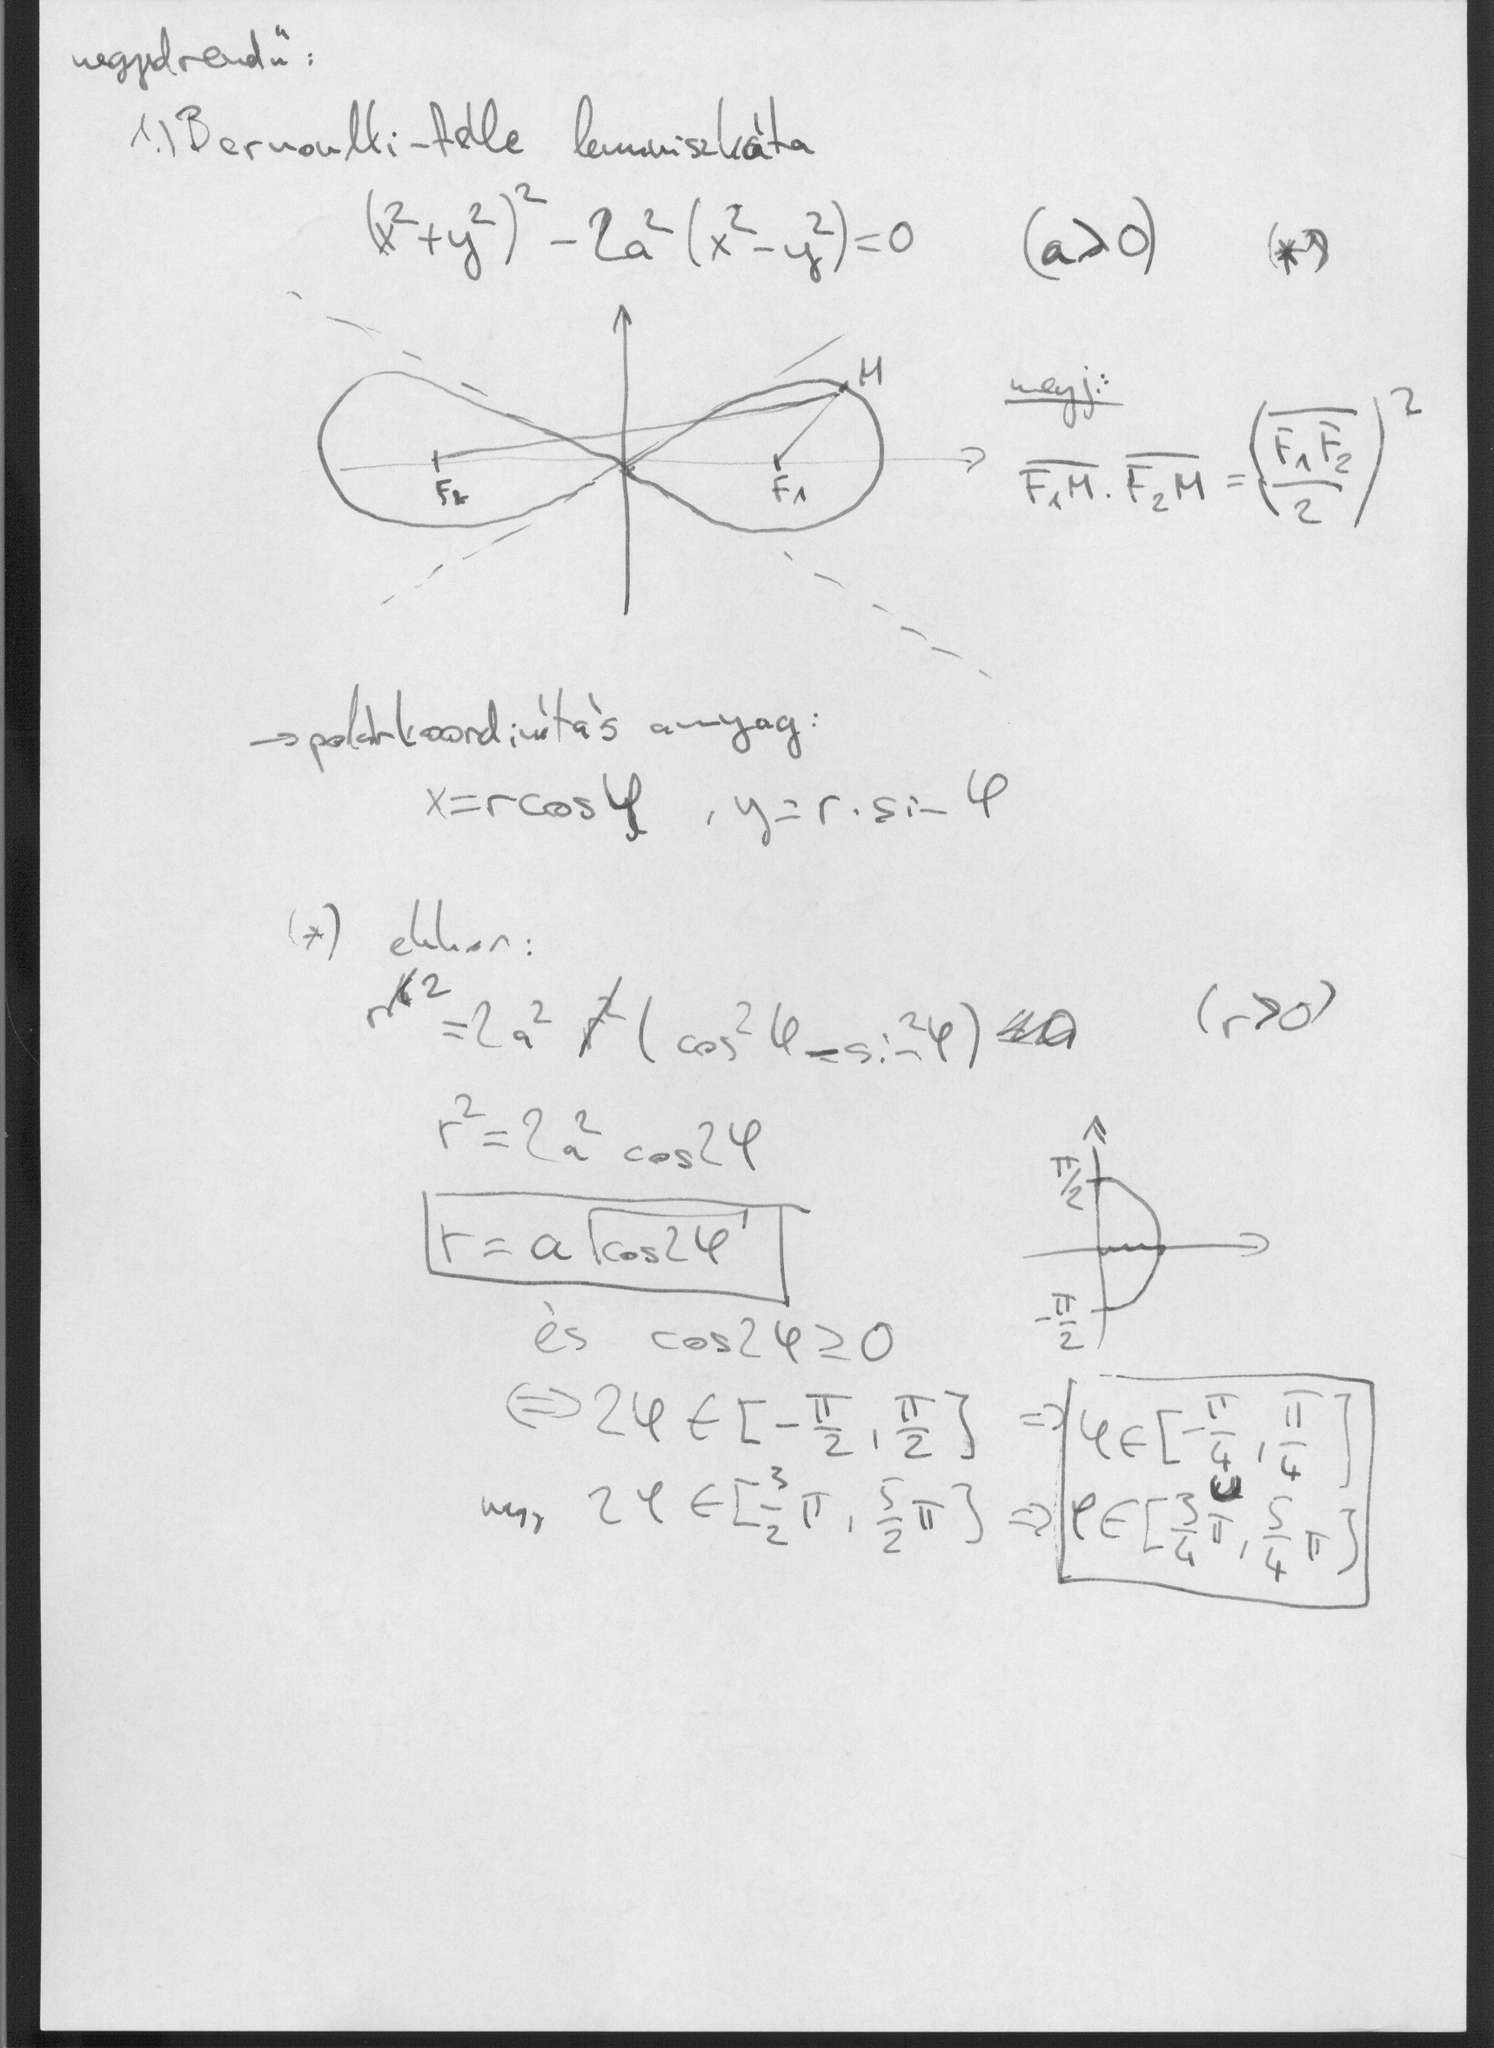 negyedrendű:
1.) Bernoulli-féle lemniszkáta
(x²+y²)² - 2a² (x²-y²) = 0 (a>0) (*)
M
F₂ F₁
megj.:
F₁M · F₂M = (F₁F₂/2)²
→ polárkoordinátás anyag:
x = r cos φ , y = r · sin φ
(*) ekkor:
r² = 2a² r² (cos²φ - sin²φ) (r>0)
r² = 2a² cos2φ
r = a √cos2φ
π/2
-π/2
és cos2φ ≥ 0
⇔ 2φ ∈ [-π/2, π/2] ⇒ φ ∈ [-π/4, π/4]
2φ ∈ [3/2 π, 5/2 π] ⇒ φ ∈ [3/4 π, 5/4 π]